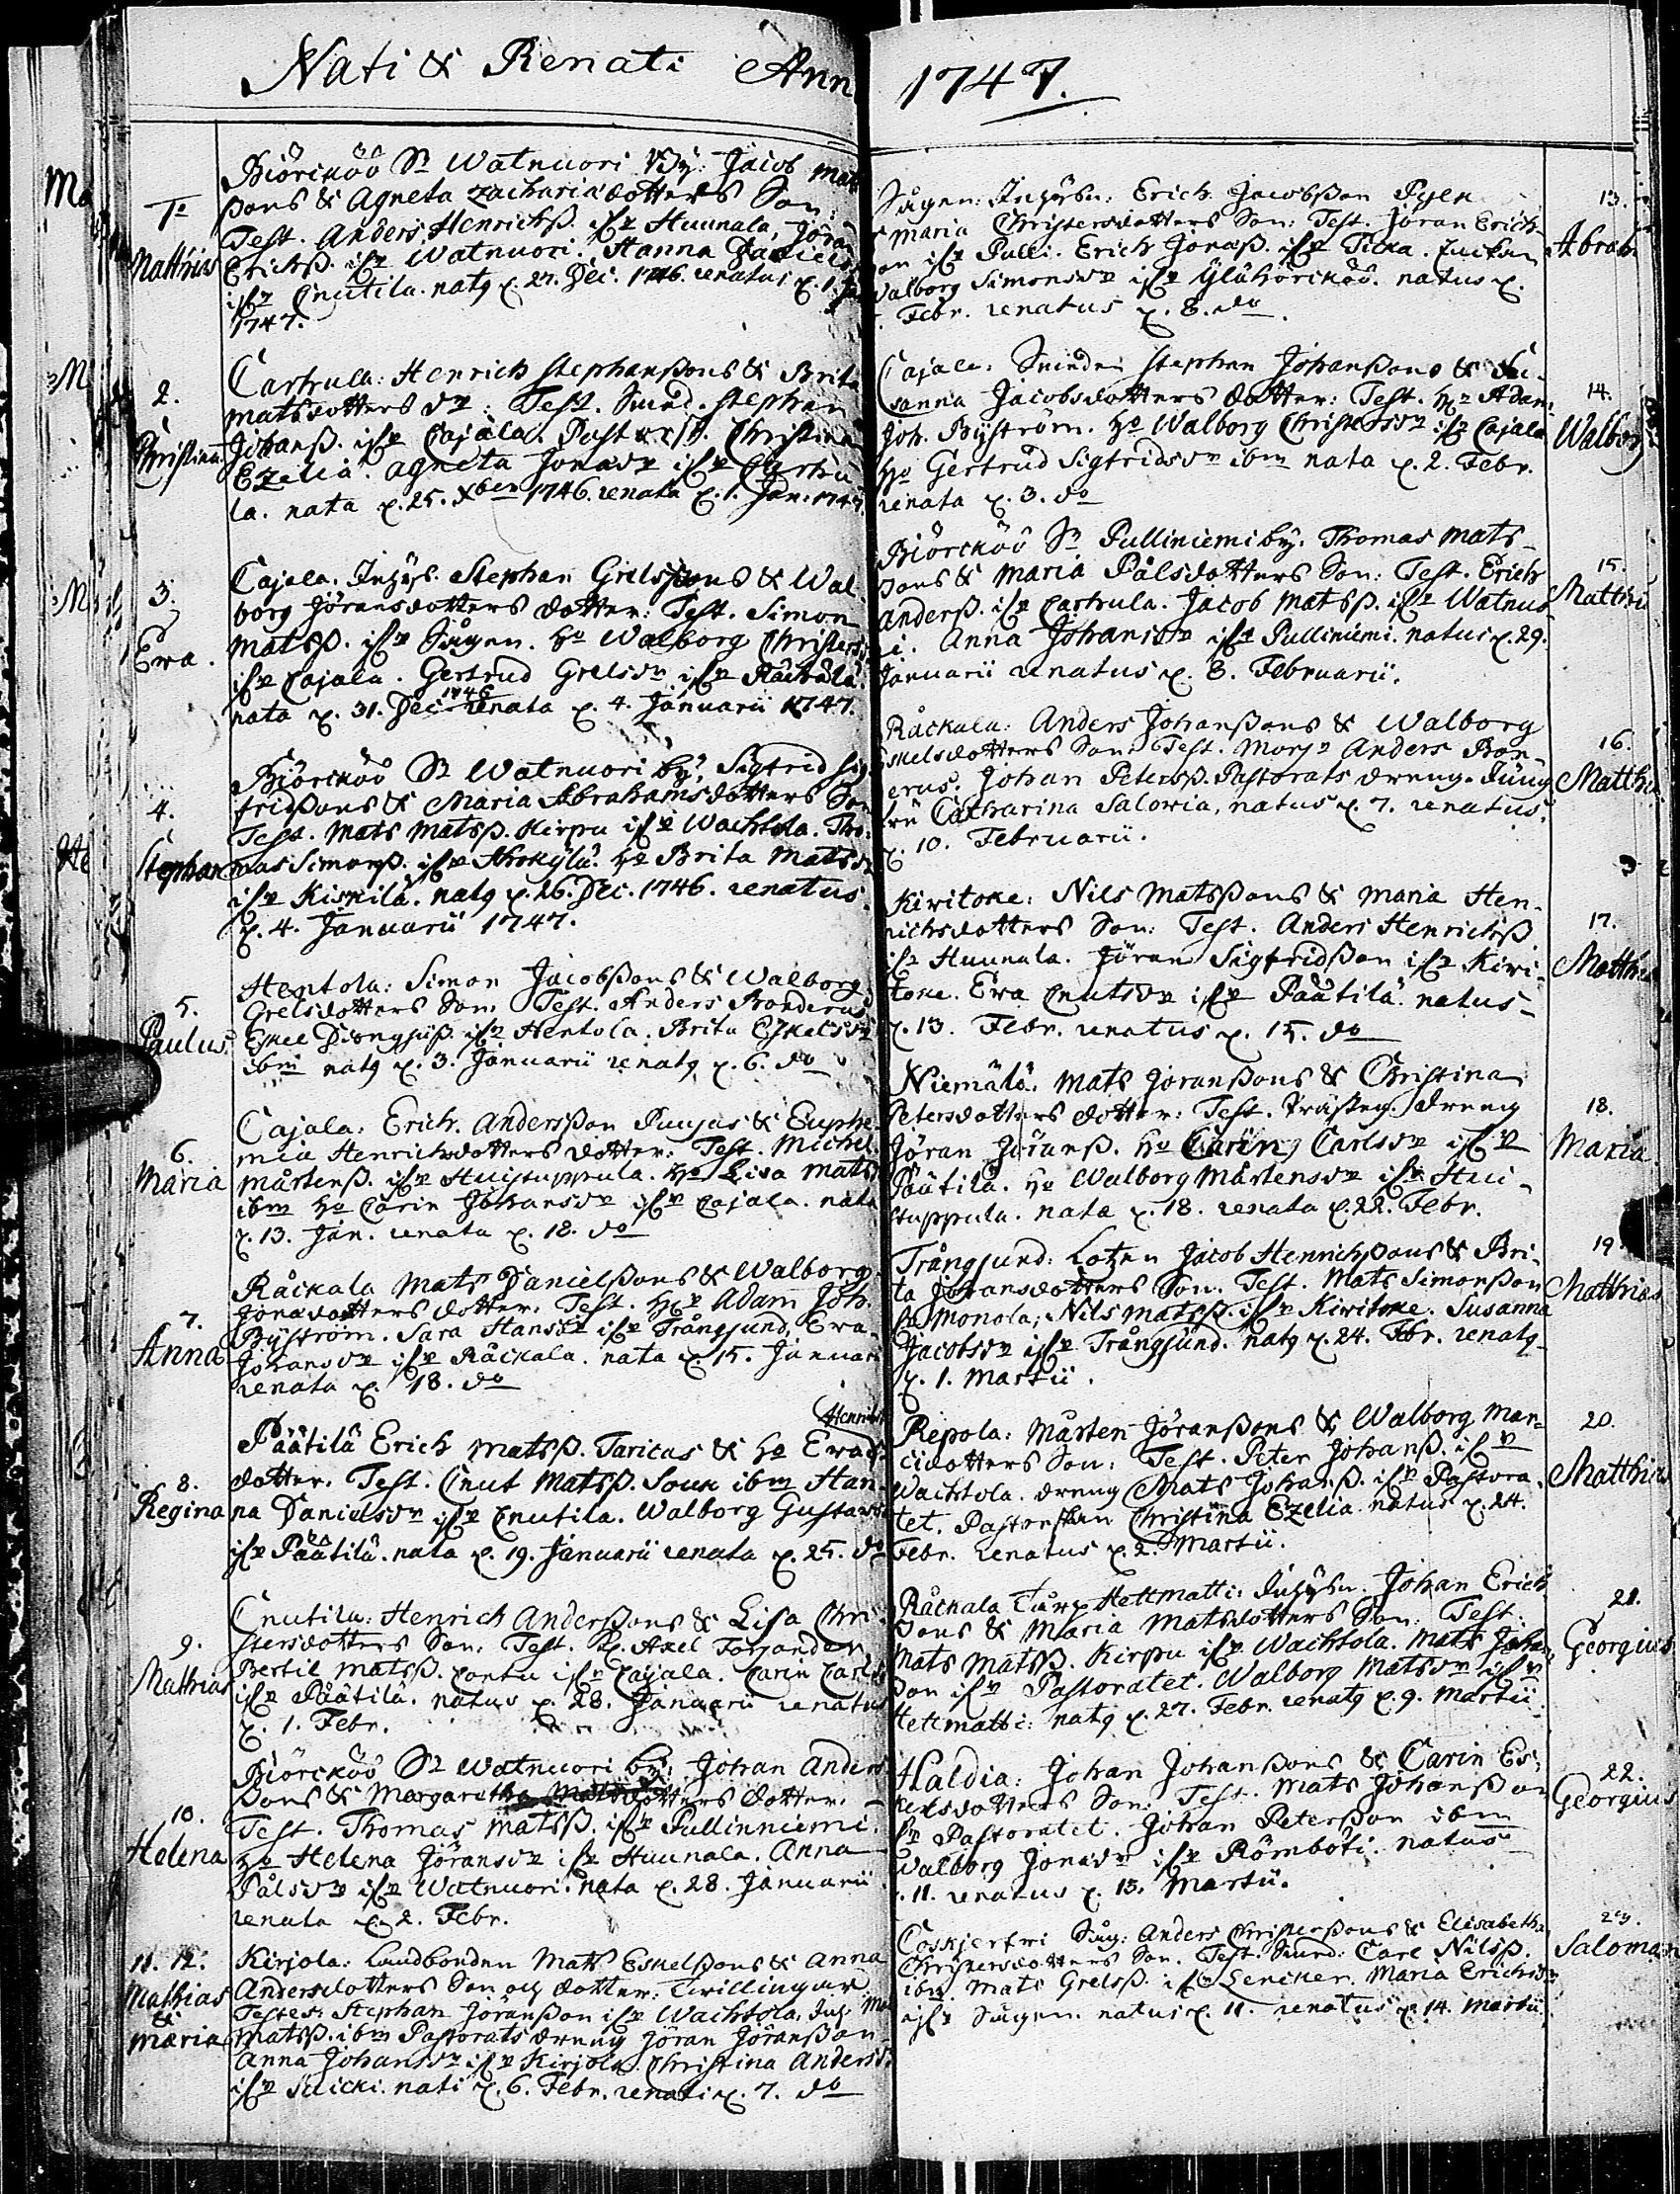 Nati & Renati Ann
1747.
1.
Matthias
Biörcköö Sn Watnuori By: Jacob Mats
sons & Agneta Zachariædotters Son:
Test. Anders Henrichss. ifr Huunala, Jöran
Erichss. ifr Watnuori. Hanna Daniels
ifr Cnutila. natg d. 27. Dec. 1746. renatus d. 1. Jan
1747.
2.
Christina
Castrula: Henrich Stephanssons & Brita
Matsdotters dr: Test. Smed. Stephan
Johanss. ifr Cajala. Pastorsk. Christina
Ezelia. Agneta Jonædr ifr Castru
la. nata d. 25. Xber 1746. renata d. 1. Jan: 1747.
3.
Ewa.
Cajala. Inhys. Stephan Grelssons & Wal-
borg Jöransdotters dotter: Test. Simon
Matss. ifr Sågen. Ho Walborg Christers
ifr Cajala. Gertrud Grelsdr ifr Råckala.
nata d. 31. Dec. 1746 renata d. 4. Januarii 1747.
4.
Stephan
Biörcköö Sn Watnuori by: Sigfrid Sig
fridssons & Maria Abrahamsdotters Son
Test. Mats Matss. Kirpu ifr Wachtola. Tho-
mas Simonss. ifr Ho Brita Matsdr
ifr Kiskilä. natg d. 26. Dec. 1746. renatus
d. 4. Januarii 1747.
5.
Paulus
Hentola: Simon Jacobssons & Walborg
Grelsdotters Son. Test. Anders Bonderus
Eskel ifr Hentola. Brita Eskelsdr
ibm natg d. 3. Januarii renatg d. 6. do
6.
Maria
Cajala: Erich Andersson Puujas & Euphe-
mia Henrichsdotters dotter: Test. Michel
Mårtenss. ifr Huistuppula. Ho Lisa Mats
ibm Ho Carin Johansdr ifr Cajala. nata
d. 13. Jan. renata d. 18. do
7.
Anna
Råckala Mats Danielssons & Walborg
Jonædotters dotter. Test. Hr Adam Joh.
Byström. Sara Hansdr ifr Trångsund, Ewa
Johansdr ifr Råckala. nata d. 15. Januari
renata d. 18. do
8.
Regina
Päätilä Erich Matss. Taricas & Ho Ewa Henrichs
dotter. Test. Cnut Matss. Souk ibm Han-
na Danielsdr ifr Cnutila. Walborg Gustavs
ifr Päätilä. nata d. 19. Januarii renata d. 25. do
9.
Mathias
Cnutila: Henrich Anderssons & Lisa Chri-
stersdotters Son: Test. H. Axel Forsander
Bertil Matss. Contu ifr Cajala. Carin Carlsd
ifr Päätilä. natus d. 28. Januarii renatus
d. 1. Febr.
10.
Helena
Biörcköö Sn Watnuori by: Johan Anders
sons & Margaretha Matsdotters dotter.
Test. Thomas Matss. ifr Pullinniemi.
Ho Helena Jöransdr ifr Huunala. Anna
Pålsdr ifr Watnuori. nata d. 28. Januarii
renata d. 2. Febr.
11. 12.
Mathias
&
Maria
Kirjola: Landbonden Mats Eskelssons & Anna
Andersdotters Son och dotter: Twillingar
Testes: Stephan Jöransson ifr Wachtola. Inh:
Matss. ibm Pastorats dreng Jöran Jöransson
Anna Johansdr ifr Kirjola. Christina Andersd.
ifr Suicki. nati d. 6. Febr. renati d. 7. do
13.
Abraham
Sågen: Inhysn. Erich Jacobsson Pylk
Maria Christersdotters Son: Test. Jöran Erich-
on ifr Pulli. Erich Jönass. ifr Ticka.
Walborg Simonsdr ifr Yläkörcköö. natus d.
. Febr. renatus d. 8. do.
14.
Walborg
Cajala: Smeden Stephan Johanssons & Su-
sanna Jacobsdotters dotter: Test. Hr Adam
Joh. Byström. Ho Walborg Christersdr ifr Cajala
Ho Gertrud Sigfridsdr ibm nata d. 2. Febr.
renata d. 3. do
15.
Matthi
Biörcköö Sn Pulliniemi by. Thomas Mats-
sons & Maria Pålsdotters Son: Test. Erich
Anderss. ifr Castrula. Jacob Matss. ifr Watnuo-
i. Anna Johansdr ifr Pulliniemi. natus d. 29.
Januarii renatus d. 8. Februarii.
16.
Matthi
Råckala: Anders Johanssons & Walborg
Eskelsdotters Son: Test. Monsr Anders Bon-
erus. Johan Peterss. Pastorats dreng. Jung-
fru Catharina Saloria, natus d. 7. renatus
d. 10. Februarii.
17.
Matthi
Kiritoke: Nils Matssons & Maria Hen-
richsdotters Son: Test. Anders Henrichss
ifr Huunala. Jöran Sigfridsson ifr Kiri-
toke. Ewa Cnutsdr ifr Päätilä. natus
d. 13. Febr. renatus d. 15. do
18.
Maria
Niemälä. Mats Joranssons & Christina
Petersdotters dotter: Test. Präsleg. dreng
Jöran Jöranss. Ho Carin Carlsdr ifr
Päätilä. Ho Walborg Mårtensdr ifr Hui-
stuppula. nata d. 18. renata d. 22. Febr.
19.
Matthias
Trångsund: Lotzen Jacob Henrichssons & Bri-
ta Johansdotters Son. Test. Mats Simonsson
fr Monola; Nils Matss. ifr Kiritoke. Susanna
Jacobsdr ifr Trångsund. natg d. 24. Fbr. renatg
d. 1. Martii.
20.
Matthias
Repola: Mårten Jöranssons & Walborg Mar-
cidotters Son: Test. Peter Johanss. ifr
Wachtola. dreng Mats Johanss. ifr Pastora-
tet. Pastorskan Christina Ezelia. natus d. 24.
Febr. renatus d. 2. Martii.
21.
Georgius
Råckala Turp Hettmatti: Inhysn. Johan Erich
sons & Maria Matsdotters Son: Test.
Mats Matss. Kirpu ifr Wachtola. Mats Johan-
son ifr Pastoratet. Walborg Matsdr ifr
Hettmatti: natg d. 27. Febr. renatg d. 9. Martii.
22.
Georgius
Haldia: Johan Johanssons & Carin Es-
kelsdotters Son: Test. Mats Johansson
fr Pastoratet. Johan Petersson ibm
Walborg Jonædr ifr Römböti. natus
. 11. renatus d. 13. Martii.
23.
Saloman
Coskjerfwi Såg: Anders Christerssons & Elisabetha
Christersdotters Son. Test. Smed: Carl Nilss.
ibm. Mats Grelss. ifr Lencker. Maria Erichsdr
ifr Sågen. natus d. 11. renatus d. 14. Martii